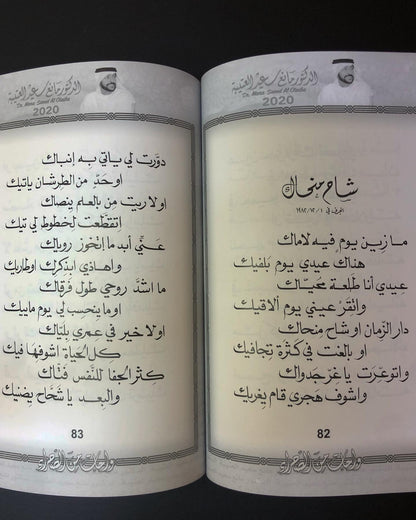 الدكتور مانع سعيد العتيبة
Dr. Mana Saeed Al Otaiba
2020
شاح منحاك
ما زين يوم فيه لاماك
هناك عيدي يوم بلفيك
عيدي أنا طلعة محياك
واتقز عيني يوم ألاقيك
دار الزمان او شاح منحاك
او بالغت في كثرة تجافيك
واتوعرت يا غز جدواك
واشوف هجري قام يغريك
82
واحات من الصحراء
الدكتور مانع سعيد العتيبة
Dr. Mana Saeed Al Otaiba
2020
دورت لي ياتي به إنباك
اوحد من الطرشان ياتيك
اولا ريت من بالعلم ينصاك
اتقطعت لخطوط لي تيك
عني أبد ما إنحوز روياك
واهاذي ابذكرك اوطاريك
ما اشد روحي طول فرقاك
اوما ينحسب لي يوم مابيك
اولا خير في عمري بلياك
كل الحياة اشوفها فيك
كثر الجفا للنفس فتاك
والبعد يا شحاح يضنيك
83
واحات من الصحراء